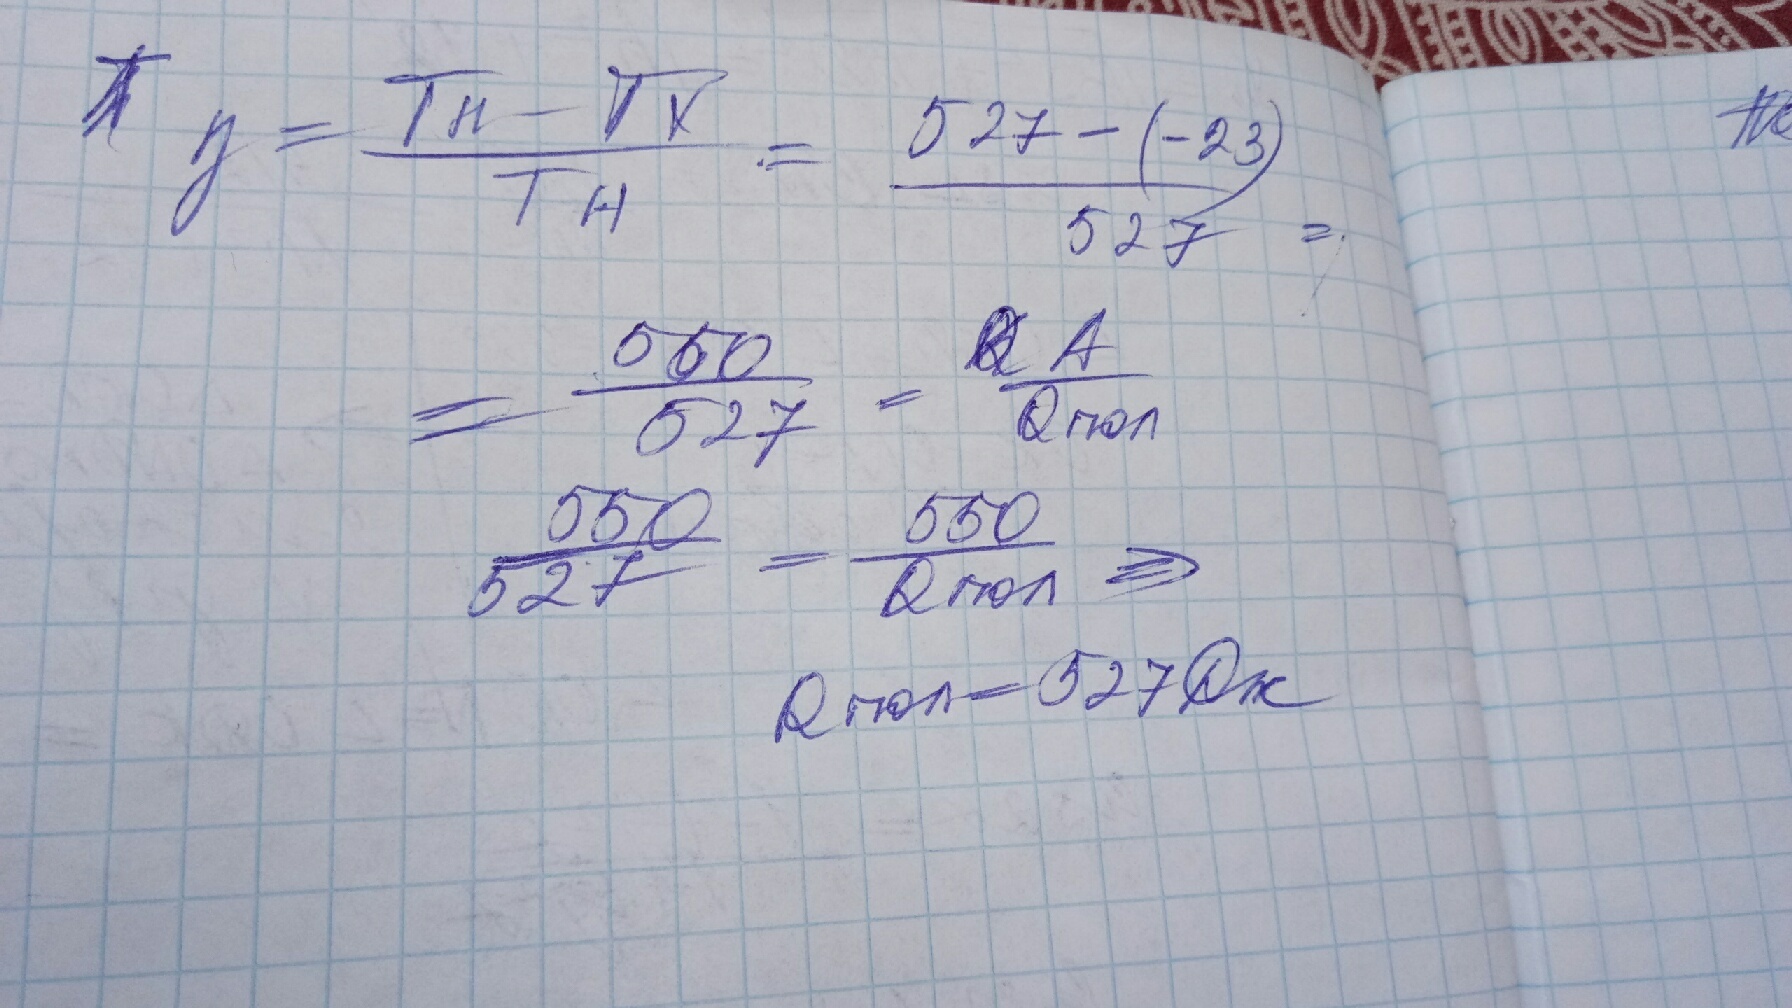 η = Tн - Tх / Tн = 527 - (-23) / 527 =
= 550 / 527 = A / Qпол
550 / 527 = 550 / Qпол ⇒
Qпол = 527 Дж